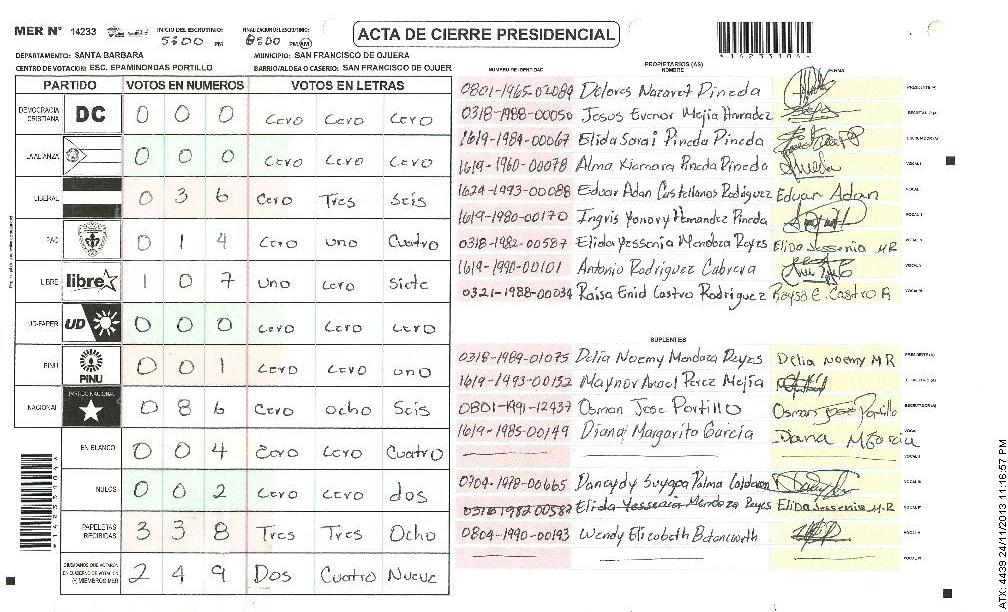 MER Nº 14233 INICIO DEL ESCRUTINIO: 5:00 PM FINALIZACION DEL ESCRUTINIO: 8:00 PM/AM
ACTA DE CIERRE PRESIDENCIAL
DEPARTAMENTO: SANTA BARBARA MUNICIPIO: SAN FRANCISCO DE OJUERA
CENTRO DE VOTACION: ESC. EPAMINONDAS PORTILLO BARRIO/ALDEA O CASERIO: SAN FRANCISCO DE OJUER
PARTIDO VOTOS EN NUMEROS VOTOS EN LETRAS
DEMOCRACIA CRISTIANA DC 0 0 0 Cero Cero Cero
LA ALIANZA 0 0 0 Cero Cero Cero
LIBERAL 0 3 6 Cero Tres Seis
PAC 0 1 4 Cero uno Cuatro
LIBRE libre 1 0 7 uno Cero Siete
UD-FAPER UD 0 0 0 Cero Cero Cero
PINU PINU 0 0 1 Cero Cero uno
NACIONAL PARTIDO NACIONAL 0 8 6 Cero ocho Seis
EN BLANCO 0 0 4 Cero Cero Cuatro
NULOS 0 0 2 Cero Cero dos
PAPELETAS RECIBICAS 3 3 8 Tres Tres Ocho
CIUDADANOS QUE VOTARON EN CUADERNO DE VOTACION (+) MIEMBROS MER 2 4 9 Dos Cuatro Nueve
NUMERO DE IDENTIDAD PROPIETARIOS (AS) NOMBRE FIRMA
0801-1965-02089 Dolores Nazaret Pineda PRESIDENTE (A)
0318-1988-00050 Jesus Evenor Mejia Harradez SECRETARIO (A)
1619-1984-00067 Elida Sarai Pineda Pineda ESCRUTADOR (A)
1619-1960-00078 Alma Xiamara Pineda Pineda VOCAL I
1624-1993-00088 Eduar Adan Castellanos Rodriguez Eduar Adan
1619-1980-00170 Ingris Yonory Hernandez Pineda
0318-1982-00587 Elida Yessenia Mendoza Reyes Elida Jessenia MR
1619-1990-00101 Antonio Rodriguez Cabrera
0321-1988-00034 Raisa Enid Castro Rodriguez Raysa E. Castro R
SUPLENTES
0318-1989-01075 Delia Noemy Mendoza Reyes Delia Noemy MR PRESIDENTE (A)
1619-1993-00132 Maynor Anael Perez Mejia
0801-1991-12937 Osman Jose Portillo Osman Jose Portillo
1619-1985-00149 Diana Margarita Garcia Diana M Garcia
0704-1978-00665 Dancydy Suyapa Palma Calderon
0318 1982 00587 Elida Yessenia Mendoza Reyes Elida Jessenia M.R
0804-1990-00193 Wendy Elizabeth Betancourth
ATX: 4439 24/11/2013 11:16:57 PM